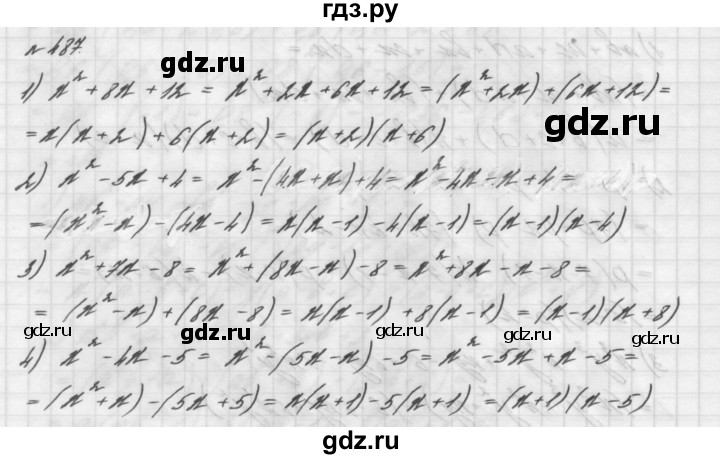 гдз.ру
№ 487.
gdz.ru
1) x² + 8x + 12 = x² + 2x + 6x + 12 = (x² + 2x) + (6x + 12) =
gdz.ru
= x(x + 2) + 6(x + 2) = (x + 2)(x + 6)
2) x² - 5x + 4 = x² - (4x + x) + 4 = x² - 4x - x + 4 =
= (x² - x) - (4x - 4) = x(x - 1) - 4(x - 1) = (x - 1)(x - 4)
3) x² + 7x - 8 = x² + (8x - x) - 8 = x² + 8x - x - 8 =
= (x² - x) + (8x - 8) = x(x - 1) + 8(x - 1) = (x - 1)(x + 8)
gdz.ru gdz.ru gdz.ru gdz.ru
4) x² - 4x - 5 = x² - (5x - x) - 5 = x² - 5x + x - 5 =
= (x² + x) - (5x + 5) = x(x + 1) - 5(x + 1) = (x + 1)(x - 5)
gdz.ru